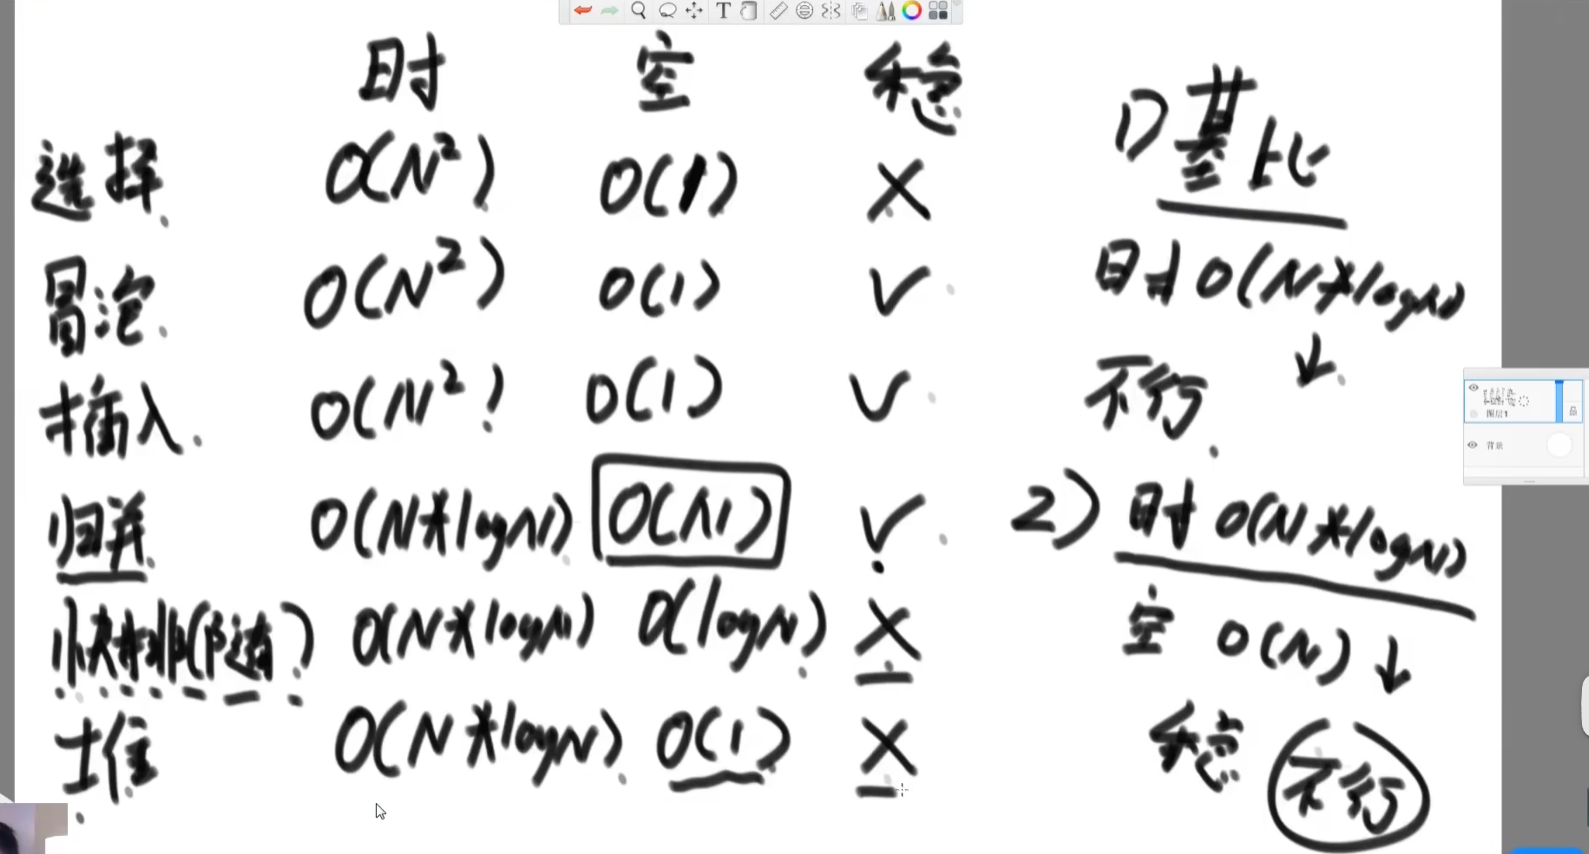 时 空 稳
选择 O(N²) O(1) X
冒泡 O(N²) O(1) √
插入 O(N²) O(1) √
归并 O(N*logN) O(N) √
快排(随) O(N*logN) O(logN) X
堆 O(N*logN) O(1) X
1) 基比
时 O(N*logN) ↓
不行
2) 时 O(N*logN)
空 O(N) ↓
稳 不行
T
图层1
背景